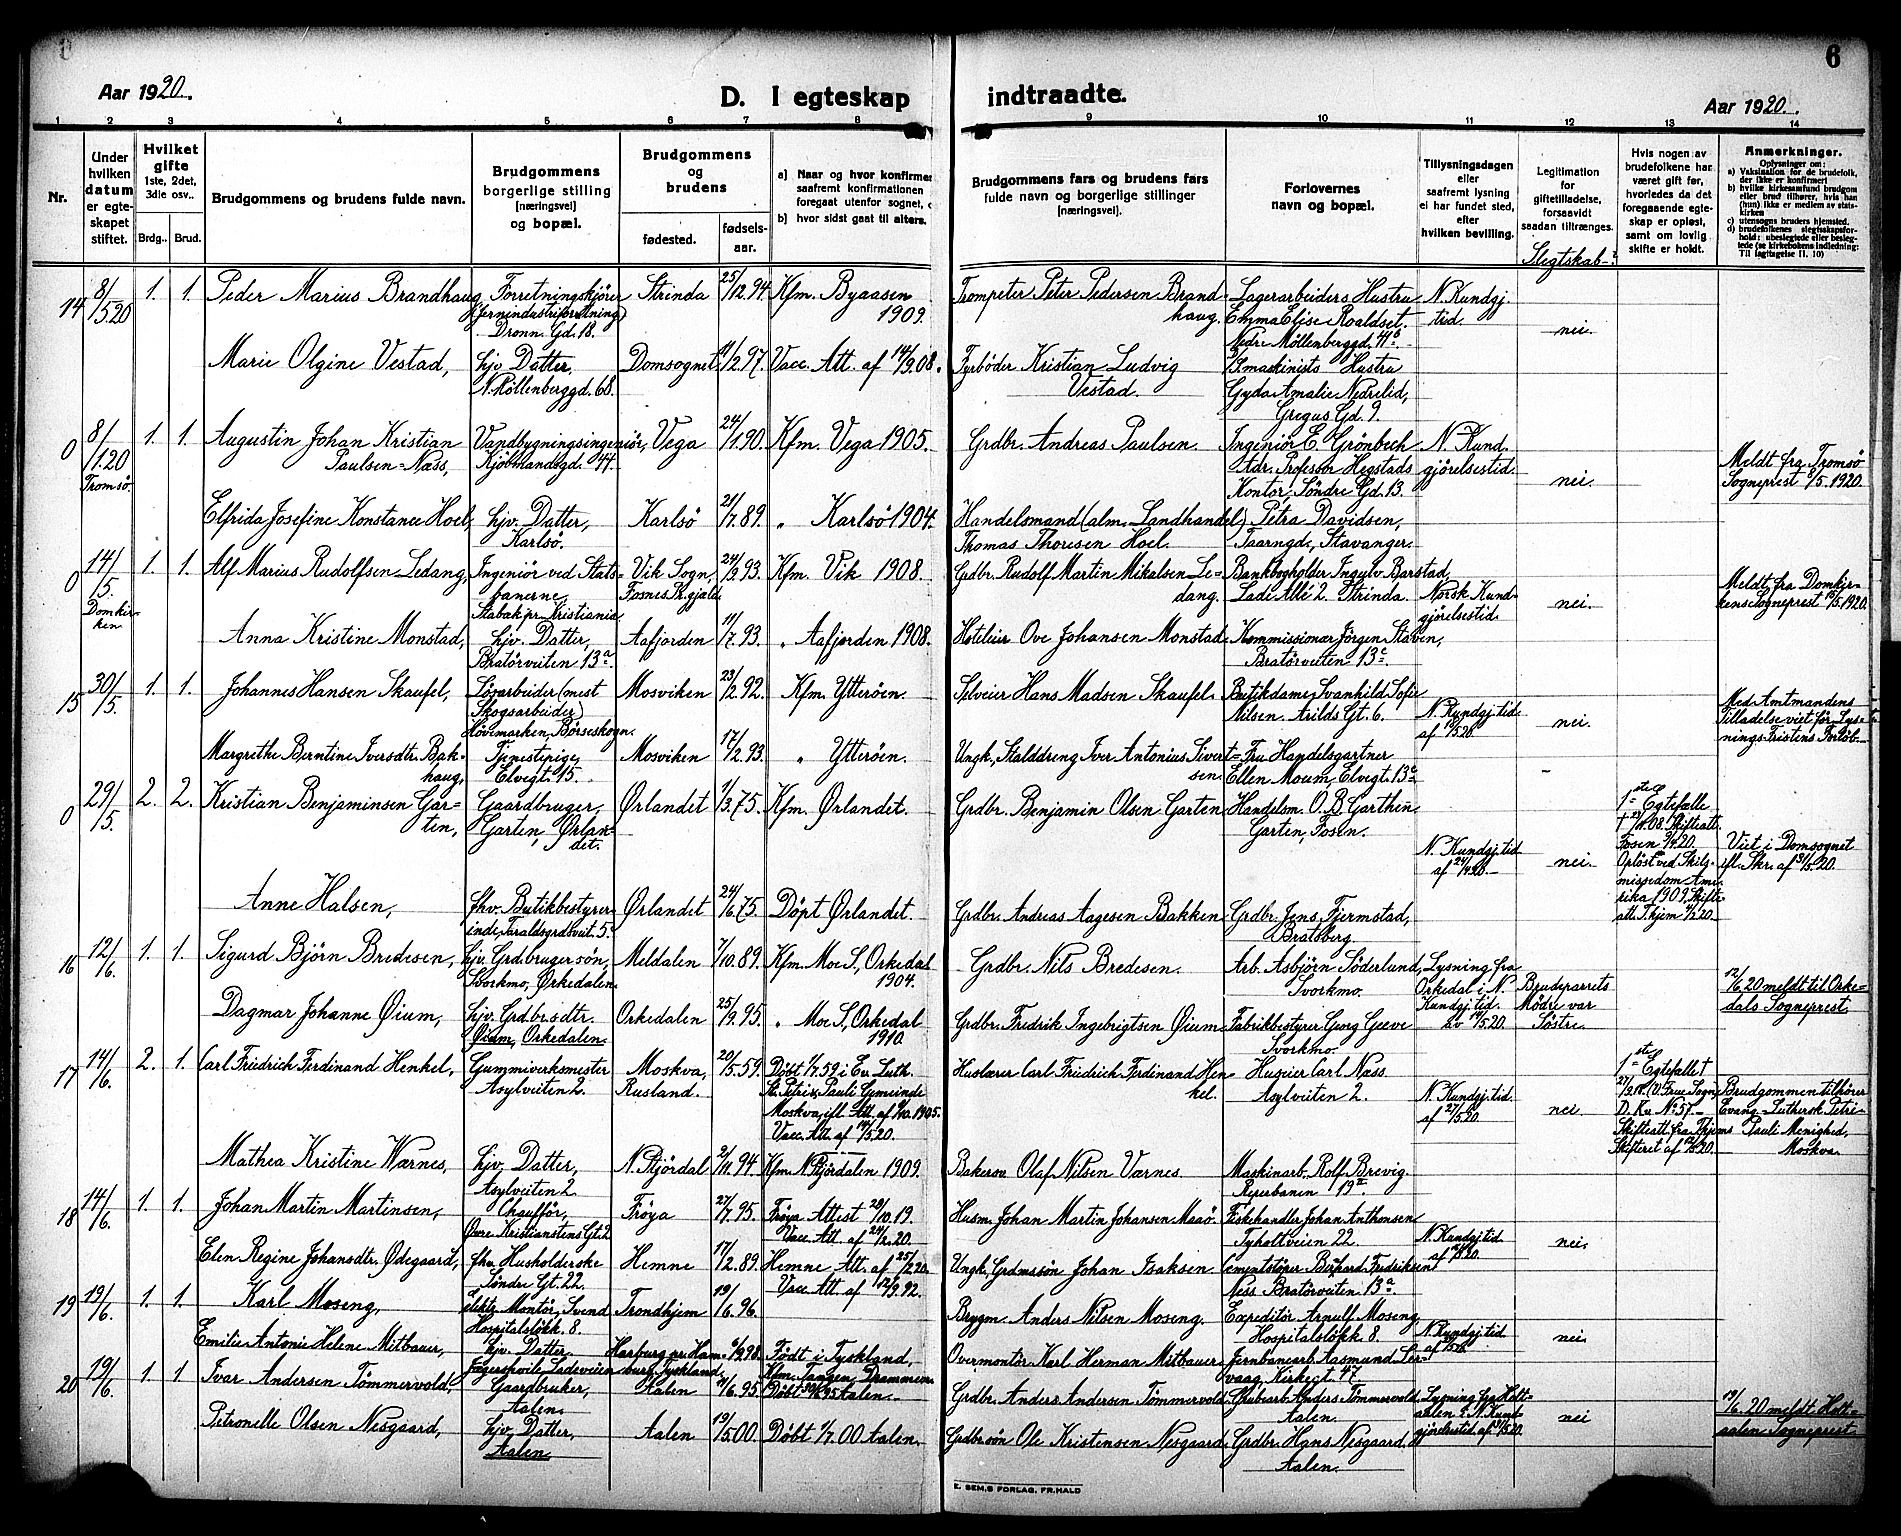 6
Aar 1920.
D. I egteskap indtraadte.
Aar 1920.
1 2 3 4 5 6 7 8 9 10 11 12 13 14
Nr.
Under hvilken datum er egteskapet stiftet.
Hvilket gifte 1ste, 2det, 3die osv..
Brdg.. Brud.
Brudgommens og brudens fulde navn.
Brudgommens borgerlige stilling (næringsvei) og bopæl.
Brudgommens og brudens
fødested. fødselsaar.
a) Naar og hvor konfirmer
saafremt konfirmationen
foregaat utenfor sognet,
b) hvor sidst gaat til alters.
Brudgommens fars og brudens fars
fulde navn og borgerlige stillinger
(næringsvei).
Forlovernes navn og bopæl.
Tillysningsdagen eller saafremt lysning ei har fundet sted, efter hvilken bevilling.
Legitimation for giftetilladelse, forsaavidt saadan tiltrænges.
Slegtskab?
Hvis nogen av brudefolkene har været gift før, hvorledes da det foregaaende egteskap er opløst, samt om lovlig skifte er holdt.
Anmerkninger.
Oplysninger om:
a) Vaksination for de brudefolk, der ikke er konfirmert
b) hvilke kirkesamfund brudgom eller brud tilhører, hvis han (hun) ikke er medlem av statskirken
c) utensogns bruders hjemsted.
d) brudefolkenes slegtskapsforhold: ubeslegtede eller beslegtede (se kirkebokens indledning: Til iagttagelse II. 10)
14 8/5.20 1. 1. Peder Marius Brandhaug Forretningskjörer (Jernindustriforretning) Dronn. Gd. 18. Strinda 25/12.94 Kfm. Byaasen 1909. Trompeter Peter Pedersen Brandhaug. Lagerarbeiders Hustru Emma Elise Roaldset. Nedre Möllenberggd. 41 b N. Kundgj. tid. nei.
Marie Olgine Vestad, hjv. Datter, N. Möllenberggd. 68. Domsognet 11/2.97. Vacc. Att. af 14/9.08. Fyrböder Kristian Ludvig Vestad. maskinists Hustru Gyda Amalie Nedrelid, Gregus Gd. 9.
0 8/1.20 Tromsö. 1. 1. Augustin Johan Kristian Paulsen=Næss, Vandbygningsingeniör, Kjöbmandsgd. 44. Vega 24/1.90. Kfm. Vega 1905. Grdbr. Andreas Paulsen. Ingeniör E. Grönbech Adr. Professor Hegstads Kontor, Söndre Gd. 13. N. Kundgjörelsestid. nei. Meldt fra Tromsö Sogneprest 8/5.1920.
Elfrida Josefine Konstance Hoel, hjv. Datter, Karlsö. Karlsö 21/7.89. " Karlsö 1904. Handelsmand (alm. Landhandel) Thomas Thoresen Hoel. Petra Davidsen, Taarngd., Stavanger.
0 14/5. Domkirken 1. 1. Alf Marius Rudolfsen Ledang, Ingeniör ved Statsbanerne, Stabak pr. Kristiania. Vik Sogn, Fosnes Pr.gjæld 24/3.93. Kfm. Vik 1908. Grdbr. Rudolf Martin Mikalsen Ledang. Bankbogholder Ingulv Barstad, Lade Allé 2. Strinda. Norsk Kundgjörelsestid. nei. Meldt fra Domkirkens Sogneprest 15/5.1920.
Anna Kristine Monstad, hjv. Datter, Bratörveiten 13 a. Aafjorden 11/7.93. " Aafjorden 1908. Hoteleier Ove Johansen Monstad Kommissionær Jörgen Staven, Bratörveiten 13 c.
15 30/5. 1. 1. Johannes Hansen Skaufel, Lösarbeider (mest Skogsarbeider) Hövemarken, Börseskogn. Mosviken 23/2.92. Kfm. Ytteröen. Selveier Hans Madsen Skaufel. Butikdame Svanhild Sofie Nilsen. Arilds Gt. 6. N. Kundgj. tid. nei. Med Amtmandens Tilladelse viet för Lysnings-Fristens Forlöb.
Margrethe Berntine Iversdtr. Bakhaug, Tjenestepige, Elvegt. 15. Mosviken 17/2.93. " Ytteröen. Ungk., Stalddreng Iver Antonius Sivertsen. Fru Handelsgartner Ellen Moum, Elvegt. 13 a
0 29/5. 2. 2. Kristian Benjaminsen Garten, Gaardbruger, Garten, Ørlandet. Ørlandet 1/3.75. Kfm. Ørlandet. Grdbr. Benjamin Olsen Garten Handelsm. O. B. Garthen Garten, Fosen. N. Kundgj. tid af 24/4.20. nei. 1ste Egtefælle † 2/11.08. Skifteatt. Fosen 9/4.20. Oplöst ved Skilsmissedom Amerika 1909, Skifteatt. T.hjem 4/5.20. Viet i Domsognet ifl. Skr. af 31/5.20.
Anne Halsen, fhv. Butikbestyrerinde, Taraldsgrdsveit. 5 c Ørlandet 24/6.75. Döpt Ørlandet. Grdbr. Andreas Aagesen Bakken Grdbr. Jens Fjermstad, Bratsberg.
16 12/6. 1. 1. Sigurd Björn Bredesen, hjv. Grdbrugersön, Svorkmo, Ørkedalen. Meldalen 7/10.89. Kfm. Moe S., Orkedal 1904. Grdbr. Nils Bredesen. Arb. Asbjörn Söderlund, Svorkmo. Lysning fra Orkedal i N. Kundgj. tid. av 14/5.20. Brudeparrets Mödre var Söstre. 12/6.20 meldt til Orkedals Sogneprest.
Dagmar Johanne Øium, hjv. Grdbr.sdtr. Øium, Orkedalen. Orkedalen 25/9.95. " Moe S., Orkedal 1910. Grdbr. Fredrik Ingebrigtsen Øium Fabrikbestyrer Georg Greve Svorkmo.
17 14/6. 2. 1. Carl Friedrich Ferdinand Henkel, Gummiverksmester Asylveiten 2. Moskva, Rusland. 20/5.59. Döbt 1/7.59 i Ev. Luth. St. Petri & Pauli Gemeinde Moskva, ifl. Att. af 9/10.1905. Vacc. Att. af 14/5.20. Huslærer Carl Friedrich Ferdinand Henkel. Huseier Carl Næss Asylveiten 2. N. Kundgj. tid. af 27/5.20. nei. 1ste Egtefælle † (V. Frue Sogn D. Kv. No 57.- Skifteatt. fra Thjems Skifteret af Brudgommen tilhörer Evang-Luthersk Petri-Pauli Menighed, Moskva.
Mathea Kristine Wærnes, hjv. Datter, Asylveiten 2. N. Stjördal 2/11.94. Kfm. N. Stjördalen 1909. Bakersv. Olaf Nilsen Værnes. Maskinarb. Rolf Brevig Reperbanen 19 II.
18 14/6. 1. 1. Johan Martin Martinsen, Chaufför, Övre Kristianstens Gt. 2 Fröya 27/7.95. Fröya Attest 28/10.19. Vacc. Att. af 24/2.20. Husm. Johan Martin Johansen Maaö. Fiskehandler Johan Anthonsen Tyholtveien 22. N. Kundgj. tid nei.
Elen Regine Johansdtr. Ødegaard, fhv. Husholderske Söndre Gt. 22. Hemne 17/2.89. Hemne Att. af 25/2.20. Vacc. Att af 12/9.92. Ungk., Grdmssön Johan Isaksen Cementstöper Bernhard Fredriksen Næss Bratörveiten 13 a.
19 19/6. 1. 1. Karl Moseng, elektr. Montör, Svend Hospitalslökk. 8. Trondhjem 19/6.96. Brygm. Anders Nilsen Moseng. Expeditör Arnulf Moseng, Hospitalslökk. 8. N. Kundgj. tid nei.
Emilie Antonie Helene Mitbauer, hjv. Datter, Jægershvile, Ladeveien Harburg pr. Hamburg, Tyskland 6/9.98. Födt i Tyskland, Kfm. Tangen, Drammen. Overmontör Karl Herman Mitbauer Jernbanearb. Aasmund Lervaag, Kirkegt. 47.
20 19/6. 1. 1. Ivar Andersen Tömmervold, Gaardbruker, Aalen. Aalen 11/6.95. Döbt 30/6.95 Aalen. Grdbr. Anders Andersen Tömmervold Grubearb. Anders Tömmervold Aalen. Lysning fra Holtaalen i N. Kundgjörelsestid af 12/5.20. nei 19/6.20 meldt Holtaalen Sogneprest.
Petronelle Olsen Nesgaard, hjv. Datter, Aalen. Aalen 19/5.00. Döbt 1/7.00 Aalen. Grdbr.sön Ole Kristensen Nesgaard, Grdbr. Hans Nesgaard, Aalen.
E. SEM,S FORLAG, FR.HALD